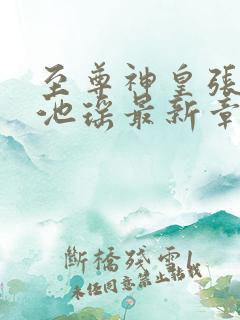 至尊神皇張
池瑤最新章
斷橋殘雪
未经同意禁止转载